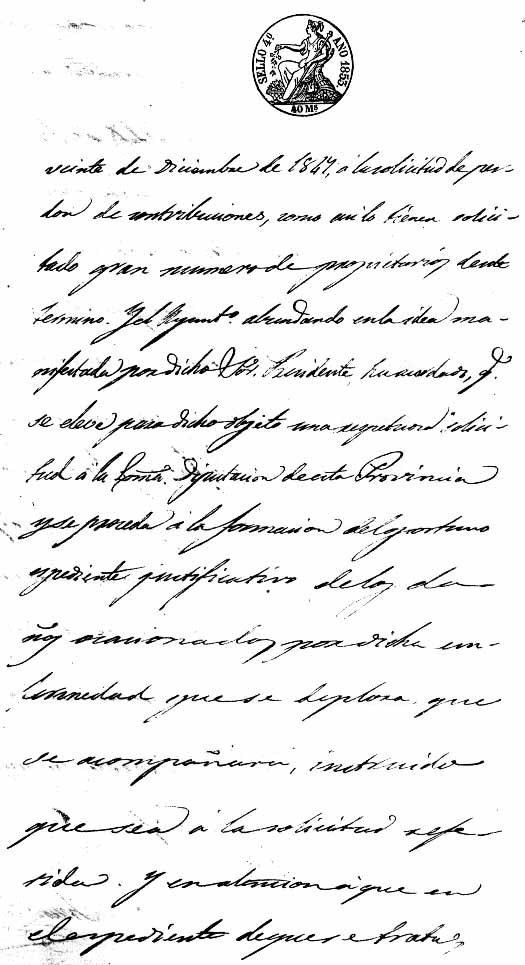 SELLO 4º AÑO 1853.
40 Ms
veinte de Diciembre de 1847, á la solicitud de per-
don de contribuciones, como asi lo tienen solici-
tado gran numero de propietarios de este
termino. Y el Ayuntº. abundando en la idea ma-
nifestada por dicho Sor. Presidente, ha acordado, q.
se eleve para dicho objeto una respetuosa solici-
tud á la Diputacion de esta Provincia
y se proceda á la formacion del oportuno
espediente justificativo de los da-
ños ocasionados por dicha en-
fermedad que se deplora, que
se acompañara, instruido
que sea á la solicitud refe-
rida. Y en atencion á que en
el espediente de que se trata,